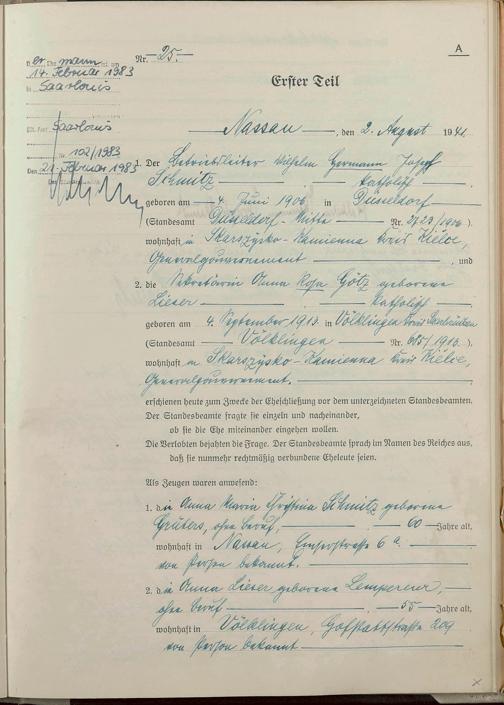 A
Nr. 25.
Der Ehemann ist am
14. Februar 1983
in Saarlouis
Saarlouis
Nr. 102/1983
Den 21. Februar 1983
Erster Teil
Nassau, den 2. August 1941
1. Der Betriebsleiter Wilhelm Hermann Josef
Schmitz katholisch
geboren am 4. Juni 1906 in Düsseldorf
(Standesamt Düsseldorf-Mitte Nr. 2723/1906)
wohnhaft in Skarszysko-Kamienna Kreis Kielce,
Generalgouvernement, und
2. die Sekretärin Anna Rosa Götz geborene
Lieser katholisch
geboren am 4. September 1913 in Völklingen Kreis Saarbrücken
(Standesamt Völklingen Nr. 615/1913)
wohnhaft in Skarszysko-Kamienna Kreis Kielce,
Generalgouvernement.
erschienen heute zum Zwecke der Eheschließung vor dem unterzeichneten Standesbeamten.
Der Standesbeamte fragte sie einzeln und nacheinander,
ob sie die Ehe miteinander eingehen wollen.
Die Verlobten bejahten die Frage. Der Standesbeamte sprach im Namen des Reiches aus,
daß sie nunmehr rechtmäßig verbundene Eheleute seien.
Als Zeugen waren anwesend:
1. die Anna Maria Christina Schmitz geborene
Grüters, ohne Beruf, 60 Jahre alt,
wohnhaft in Nassau, Emserstraße 6a.
von Person bekannt.
2. die Anna Lieser geborene Lempereur,
ohne Beruf 55 Jahre alt,
wohnhaft in Völklingen, Hofstattstraße 209
von Person bekannt